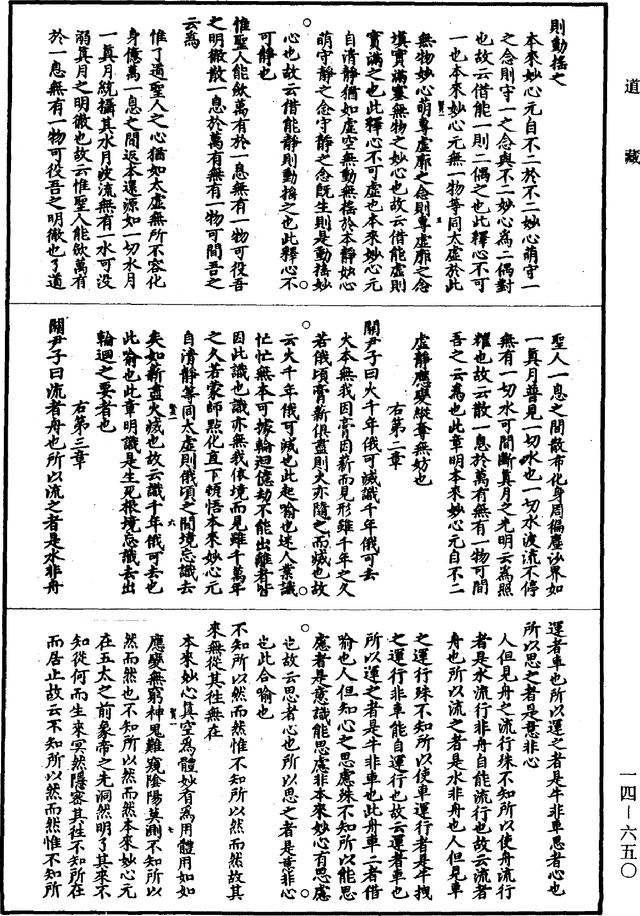 道藏
則動搖之
本來妙心元自不二於不二妙心萌守一
之念則守一之念與不二妙心為二偶對
也故云借能一則二偶之也此釋心不可
一也本來妙心元無一物等同太虛於此
無物妙心萌專虛廓之念則專虛廓之念
填實滿塞無物之妙心也故云借能虛則
實滿之也此釋心不可虛也本來妙心元
自清靜猶如虛空無動無搖於本靜妙心
萌守靜之念守靜之念既生則是動搖妙
心也故云借能靜則動搖之也此釋心不
可靜也
惟聖人能斂萬有於一息無有一物可役吾
之明徹散一息於萬有無有一物可間吾之
云為
惟了道聖人之心猶如太虛無所不容化
身億萬一息之間返本還源如一切水月
一真月統攝其水月波流無有一水可沒
溺真月之明徹也故云惟聖人能斂萬有
於一息無有一物可役吾之明徹也了道
聖人一息之間散布化身周徧塵沙界如
一真月普見一切水也一切水波流不停
無有一切水可間斷真月之光明云為照
耀也故云散一息於萬有無有一物可間
吾之云為也此章明本來妙心元自不二
虛靜應變縱奪無妨也
右第二章
關尹子曰火千年俄可滅識千年俄可去
火本無我因膏因薪而見形雖千年之久
若俄頃膏薪俱盡則火亦隨之而滅也故
云火千年俄可滅也此起喻也迷人業識
忙忙無本可據輪迴億劫不能出離者皆
因此識也識亦無我依境而見雖千萬年
之久若蒙師點化直下頓悟本來妙心元
自清靜等同太虛則俄頃之間境忘識去
矣如薪盡火滅也故云識千年俄可去也
此喻也此章明識是生死根境忘識去出
輪迴之要者也
右第三章
關尹子曰流者舟也所以流之者是水非舟
運者車也所以運之者是牛非車思者心也
所以思之者是意非心
人但見舟之流行殊不知所以使舟流行
者是水流行非舟自能流行也故云流者
舟也所以流之者是水非舟也人但見車
之運行殊不知所以使車運行者是牛拽
之運行非車能自運行也故云運者車也
所以運之者是牛非車也此舟車二者借
喻也人但知心之思慮殊不知所以能思
慮者是意識能思慮非本來妙心有思慮
也故云思者心也所以思之者是意非心
也此合喻也
不知所以然而然惟不知所以然而然故其
來無從其往無在
本來妙心真空為體妙有為用體用如如
應變無窮神鬼難窺陰陽莫測不知所以
然而然也不知所以然而然本來妙心元
在五太之前象帝之先洞然明了其來不
知從何而生來冥然隱密其往不知所在
而居止故云不知所以然而然惟不知所
一四—六五〇